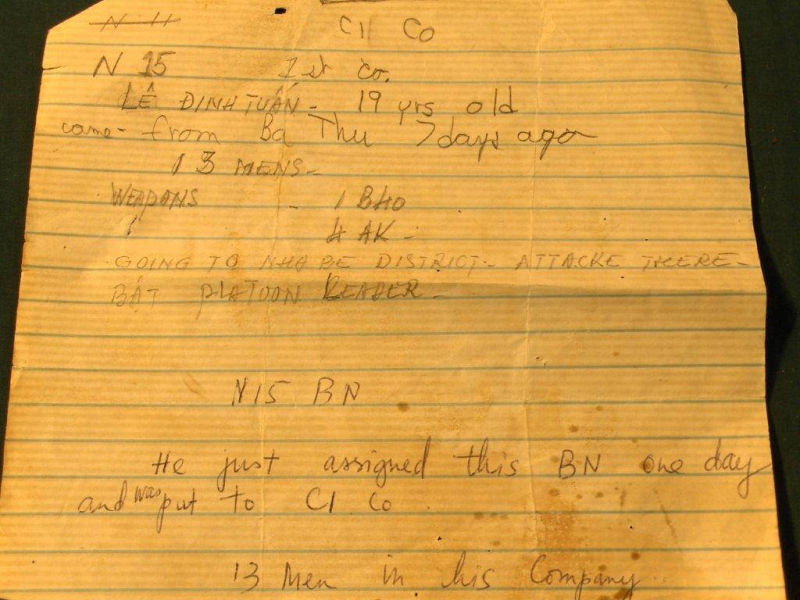 N 11 C1 Co
N 15 1st co.
LÊ ĐINH TUẤN - 19 yrs old
came - from Ba Thu 7 days ago
13 MENS -
WEAPONS - 1 B40
4 AK -
GOING TO NHA BE DISTRICT - ATTACKE THERE -
BÁT PLATOON LEADER -
N15 BN
He just assigned this BN one day
and was put to C1 Co
13 Men in his Company